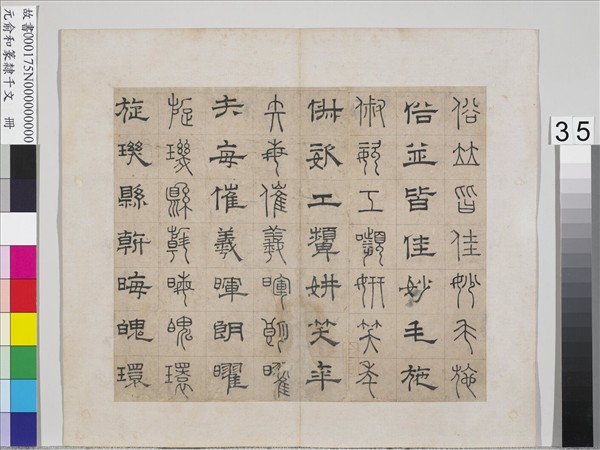 俗竝皆佳妙毛施
俗並皆佳妙毛施
俶姿工嚬妍笑年
俶姿工顰妍笑年
矢每催羲暉朗曜
矢每催羲暉朗曜
旋璣縣斡晦魄環
旋璣縣斡晦魄環
故書000175N000000000
元俞和篆隸千文 冊
35